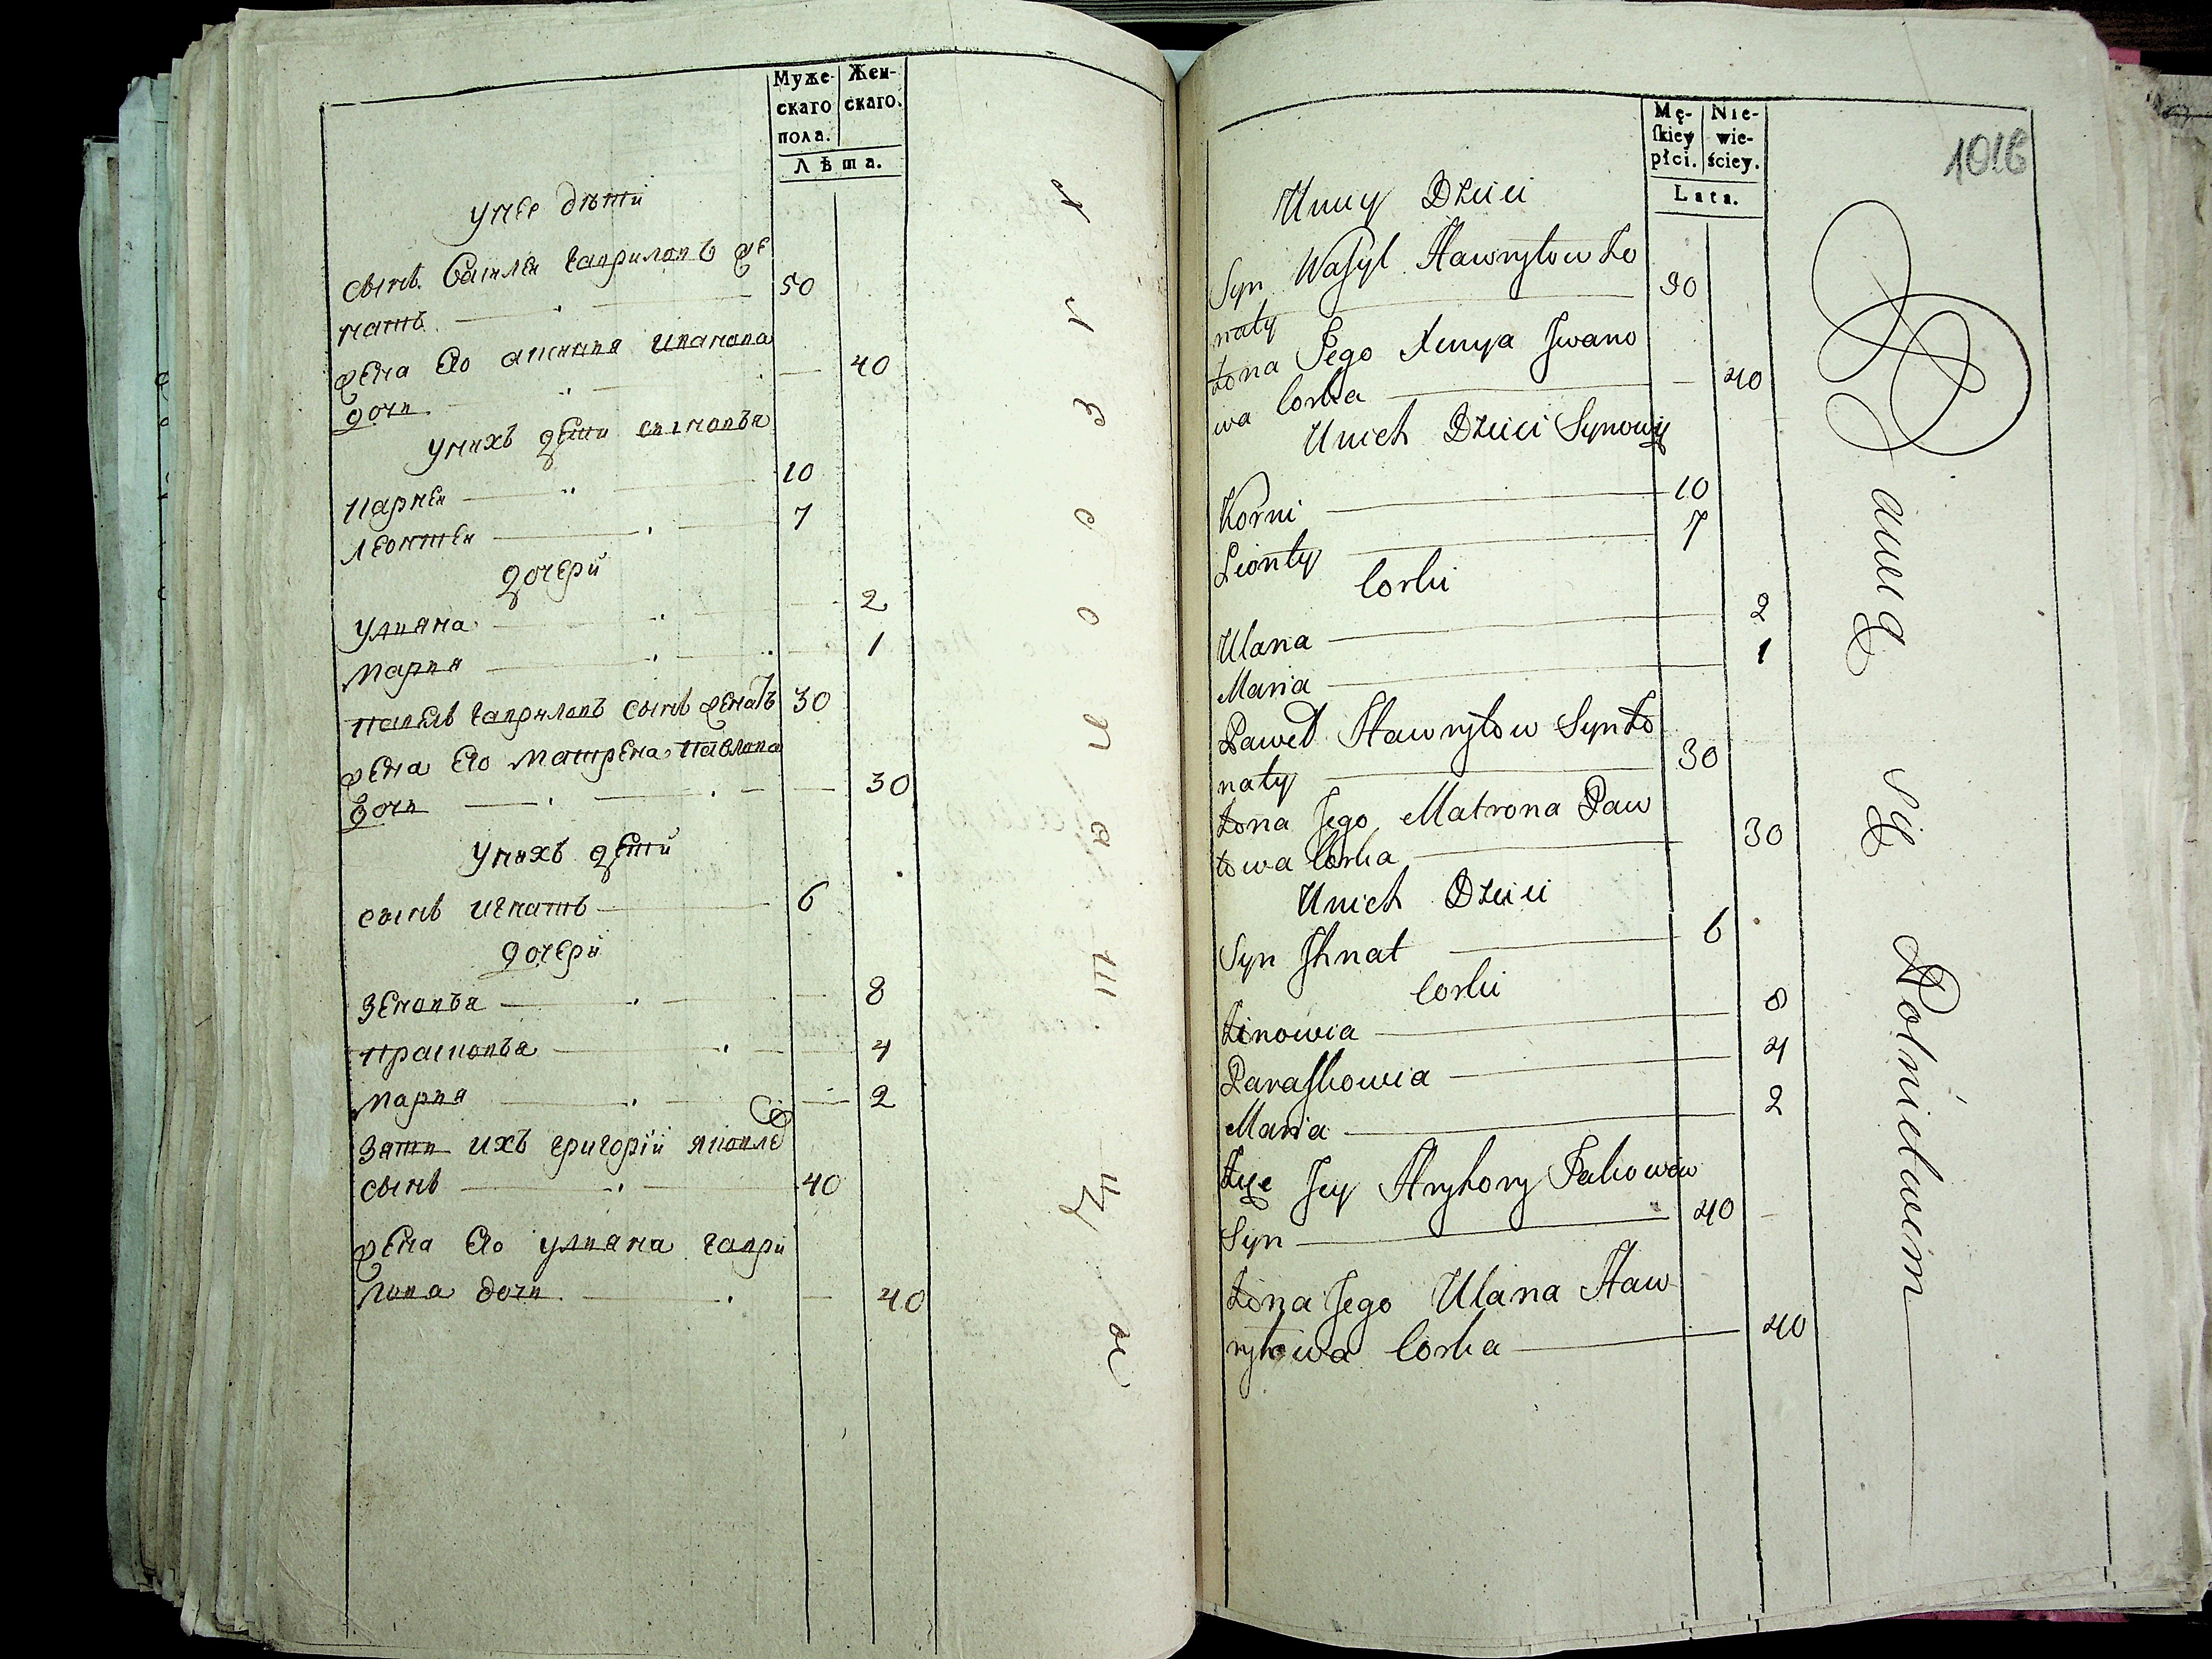 Муже-
скаго
пола.
Жен-
скаго.
Лѣта.
унее дѣти
сынъ Василеи Гавриловъ же
натъ 50
жена его Иванова
дочь 40
унихъ дети сыновья
Карнеи 10
Леонтеи 7
дочери
Улияна 2
Мария 1
Павелъ Гавриловъ сынъ женатъ 30
жена его Матрена Павлова
дочь 30
унихъ дети
сынъ Игнатъ 6
дочери
Зеновья 8
Прасковья 4
Мария 2
зять ихъ Григорій Яковле
сынъ 40
жена его Улияна Гаври
лова дочь 40
Mę-
ſkiey
płci.
Nie-
wie-
ściey.
Lata.
1016
Uniey Dzieci
Syn Waſyl Hawryłow Żo
naty
Żona Jego Xenya Jwano
wa Corka 40
Unich Dzieci Synowie
Korni 10
Lionty 7
Corki
Ulana 2
Maria 1
Paweł Hawryłow Syn Żo
naty 30
Żona Jego Matrona Paw
łowa Corka 30
Unich Dzieci
Syn Jhnat 6
Corki
Zinowia 8
Paraſkowia 4
Maria 2
Jey Hryhory Jakowow
Syn 40
Żona Jego Ulana Haw
ryłowa Corka 40
się Rolnictwem